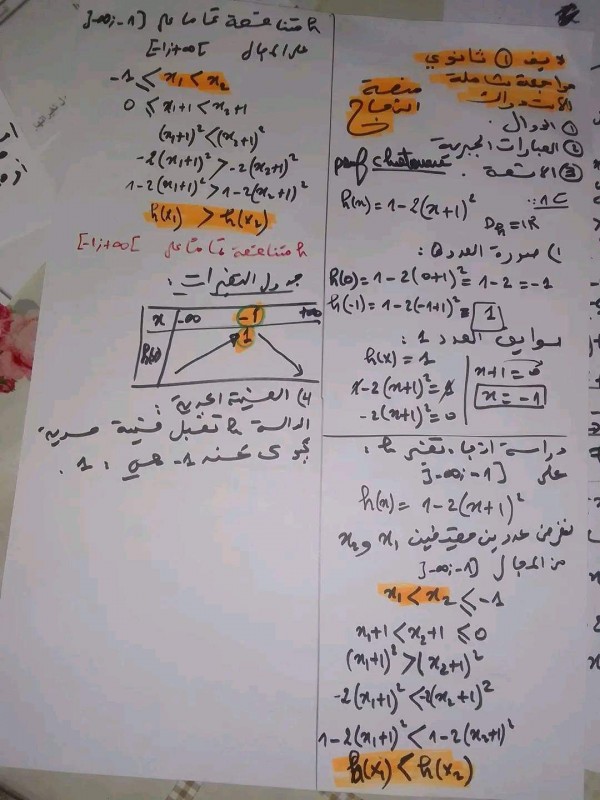 لايف ① ثانوي
مراجعة شاملة
لأستدراك
منصة
النجاح
① الدوال.
② العبارات الجبرية
③ الأشعة.
prof chetouane
h(x) = 1-2(x+1)²
D_h = IR
1) صورة العدد 0:
h(0) = 1-2(0+1)² = 1-2 = -1
h(-1) = 1-2(-1+1)² = 1
سوابق العدد 1:
h(x) = 1
1-2(x+1)² = 1
-2(x+1)² = 0
x+1 = 0
x = -1
دراسة اتجاه تغير h:
على ]-∞; -1]
h(x) = 1-2(x+1)²
نفرض عددين حقيقيين x₁ و x₂
من المجال ]-∞; -1]
x₁ < x₂ ≤ -1
x₁+1 < x₂+1 ≤ 0
(x₁+1)² > (x₂+1)²
-2(x₁+1)² < -2(x₂+1)²
1-2(x₁+1)² < 1-2(x₂+1)²
h(x₁) < h(x₂)
h متناقصة تماما على ]-∞; -1]
على المجال [-1; +∞[
-1 ≤ x₁ < x₂
0 ≤ x₁+1 < x₂+1
(x₁+1)² < (x₂+1)²
-2(x₁+1)² > -2(x₂+1)²
1-2(x₁+1)² > 1-2(x₂+1)²
h(x₁) > h(x₂)
h متناقصة تماما على [-1; +∞[
جدول التغيرات:
x -∞ -1 +∞
h(x) 1
4) القيمة الحدية:
الدالة h تقبل قيمة حدية
عند -1 هي: 1.